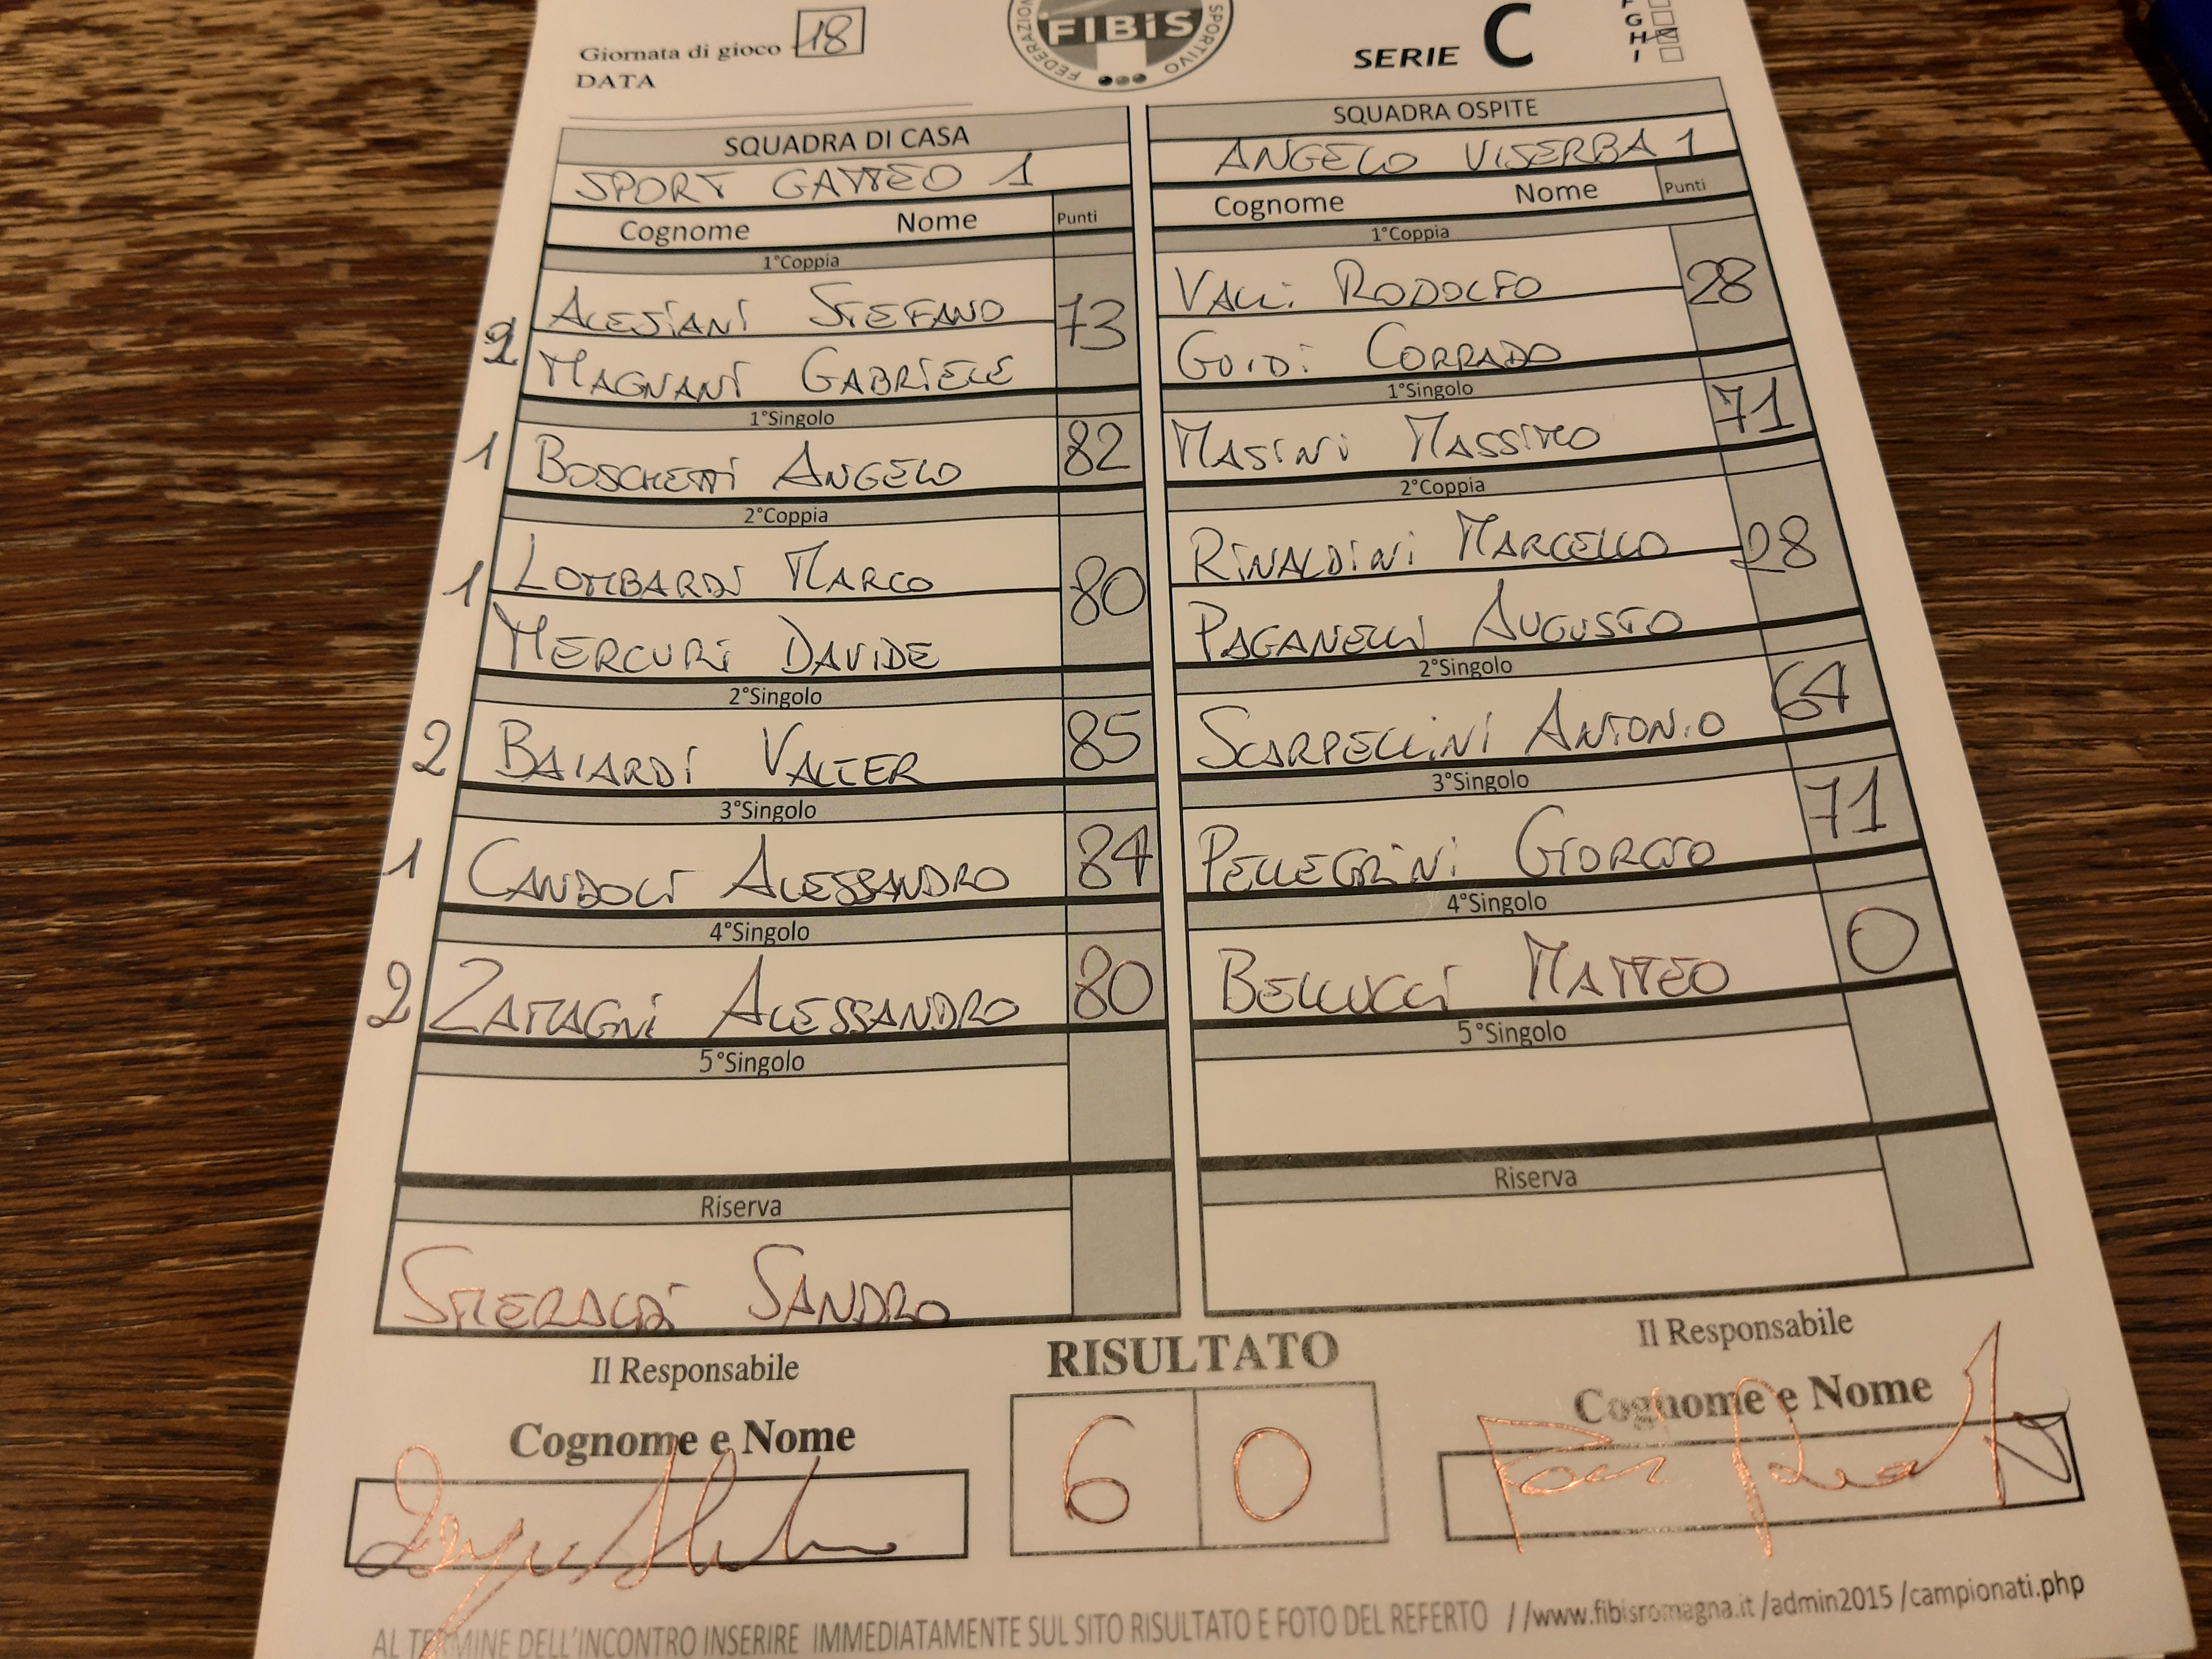 Giornata di gioco 18
DATA
FIBiS
FEDERAZIONE
SPORTIVO
SERIE C
G
H
I
SQUADRA DI CASA
SPORT GATTEO 1
Cognome Nome Punti
1°Coppia
ALESIANI STEFANO 73
2 MAGNANI GABRIELE
1°Singolo
1 BOSCHETTI ANGELO 82
2°Coppia
1 LOMBARDI MARCO 80
MERCURI DAVIDE
2°Singolo
2 BAIARDI VALTER 85
3°Singolo
1 CANDOLI ALESSANDRO 84
4°Singolo
2 ZAMAGNI ALESSANDRO 80
5°Singolo
Riserva
SMERALDI SANDRO
SQUADRA OSPITE
ANGELO VISERBA 1
Cognome Nome Punti
1°Coppia
VALLI RODOLFO 28
GUIDI CORRADO
1°Singolo
MASINI MASSIMO 71
2°Coppia
RINALDINI MARCELLO 28
PAGANELLI AUGUSTO
2°Singolo
SCARPELLINI ANTONIO 64
3°Singolo
PELLEGRINI GIORGIO 71
4°Singolo
BELLUCCI MATTEO 0
5°Singolo
Riserva
Il Responsabile
Cognome e Nome
RISULTATO
6 0
Il Responsabile
Cognome e Nome
AL TERMINE DELL'INCONTRO INSERIRE IMMEDIATAMENTE SUL SITO RISULTATO E FOTO DEL REFERTO //www.fibisromagna.it /admin2015 /campionati.php